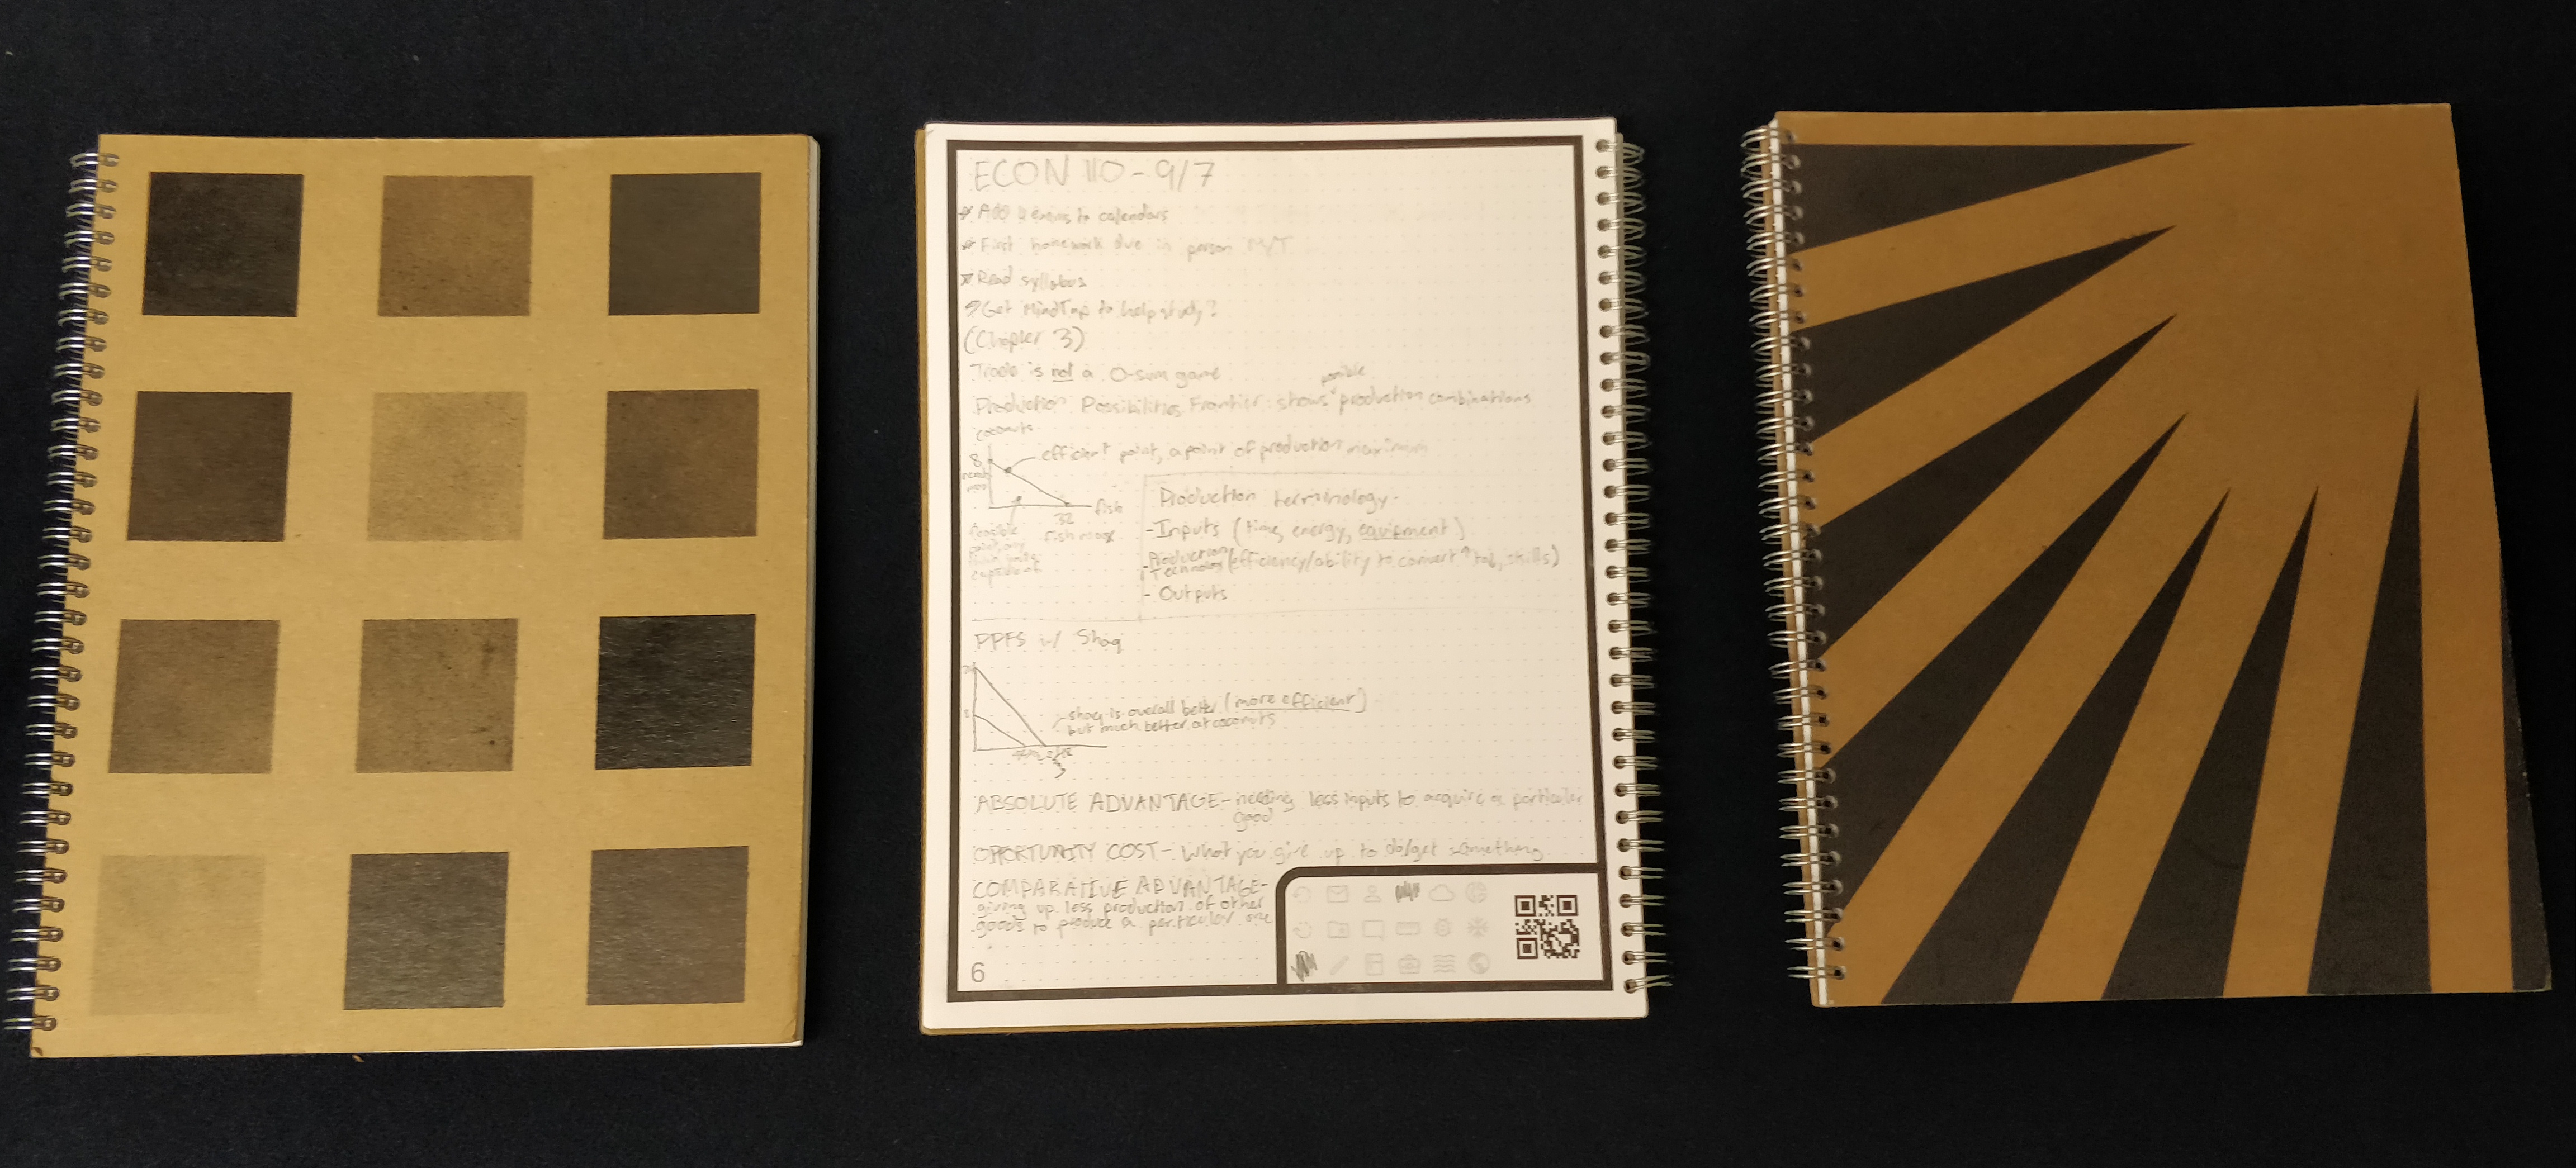 ECON 110 - 9/7
Add 4 exams to calendars
First homework due in person M/T
Read syllabus
Get MindTap to help study?
(Chapter 3)
Trade is not a 0-sum game
possible
Production Possibilities Frontier: shows production combinations
coconuts
efficient point, a point of production maximum
8
fish
32
fish max
feasible
Production terminology
- Inputs (time, energy, equipment)
- Production
Technology (efficiency/ability to convert, skills)
- Outputs
PPFS w/ Shaq
8
shaq is overall better (more efficient)
but much better at coconuts
ABSOLUTE ADVANTAGE - needing less inputs to acquire a particular
good
OPORTUNITY COST - What you give up to do/get something
COMPARATIVE ADVANTAGE -
giving up less production of other
goods to produce a particular one
6